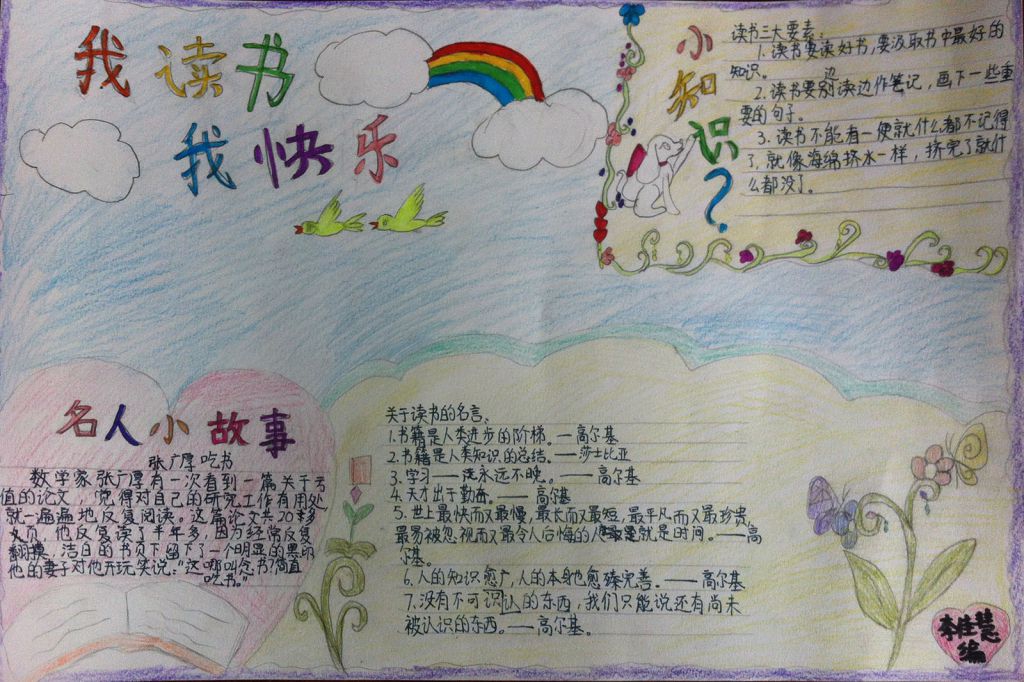 我读书
我快乐
小知识?
读书三大要素:
1.读书要读好书,要汲取书中最好的
知识。
2.读书要边读边作笔记,画下一些重
要的句子。
3.读书不能有一便就什么都不记得
了,就像海绵挤水一样,挤完了就什
么都没了。
名人小故事
张广厚吃书
数学家张广厚有一次看到一篇关于亏
值的论文,觉得对自己的研究工作有用处,
就一遍遍地反复阅读。这篇论文共20多
页,他反复读了半年多,因为经常反复
翻摸,洁白的书页下留下了一个明显的黑印
他的妻子对他开玩笑说:“这哪叫念书,简直
吃书。”
关于读书的名言、
1.书籍是人类进步的阶梯。—高尔基
2.书籍是人类知识的总结。——莎士比亚
3.学习——永远不晚。——高尔基
4.天才出于勤奋。——高尔基
5.世上最快而又最慢,最长而又最短,最平凡而又最珍贵,
最易被忽视而又最令人后悔的就是时间。——高
尔基。
6.人的知识愈广,人的本身也愈臻完善。——高尔基
7.没有不可认识的东西,我们只能说还有尚未
被认识的东西。——高尔基。
李佳慧
编